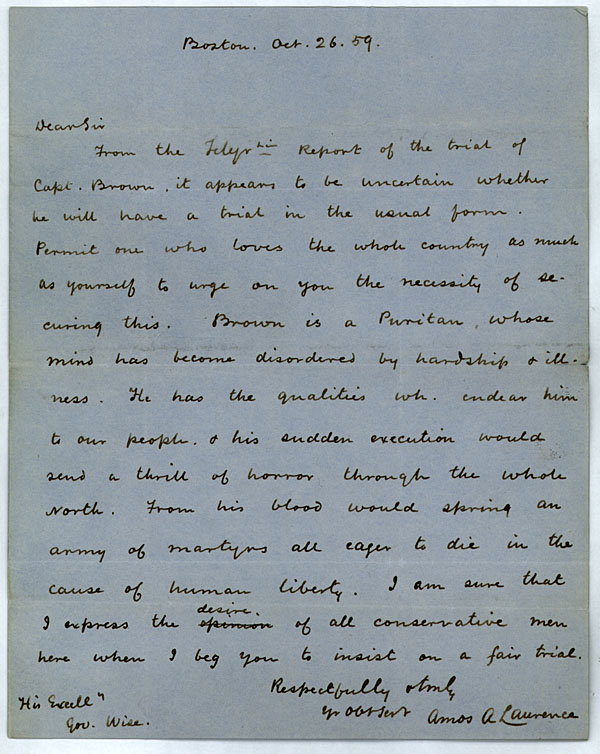 Boston. Oct. 26. 59.
Dear Sir
From the Telegr hic Report of the trial of
Capt. Brown, it appears to be uncertain whether
he will have a trial in the usual form.
Permit one who loves the whole country as much
as yourself to urge on you the necessity of se-
curing this. Brown is a Puritan, whose
mind has become disordered by hardship & ill-
ness. He has the qualities wh. endear him
to our people, & his sudden execution would
send a thrill of horror through the whole
North. From his blood would spring an
army of martyrs all eager to die in the
cause of human liberty. I am sure that
desire
I express the opinion of all conservative men
here when I beg you to insist on a fair trial.
Respectfully & truly
Yr Obt Servt
Amos A Laurence
His Excell"
Gov. Wise.